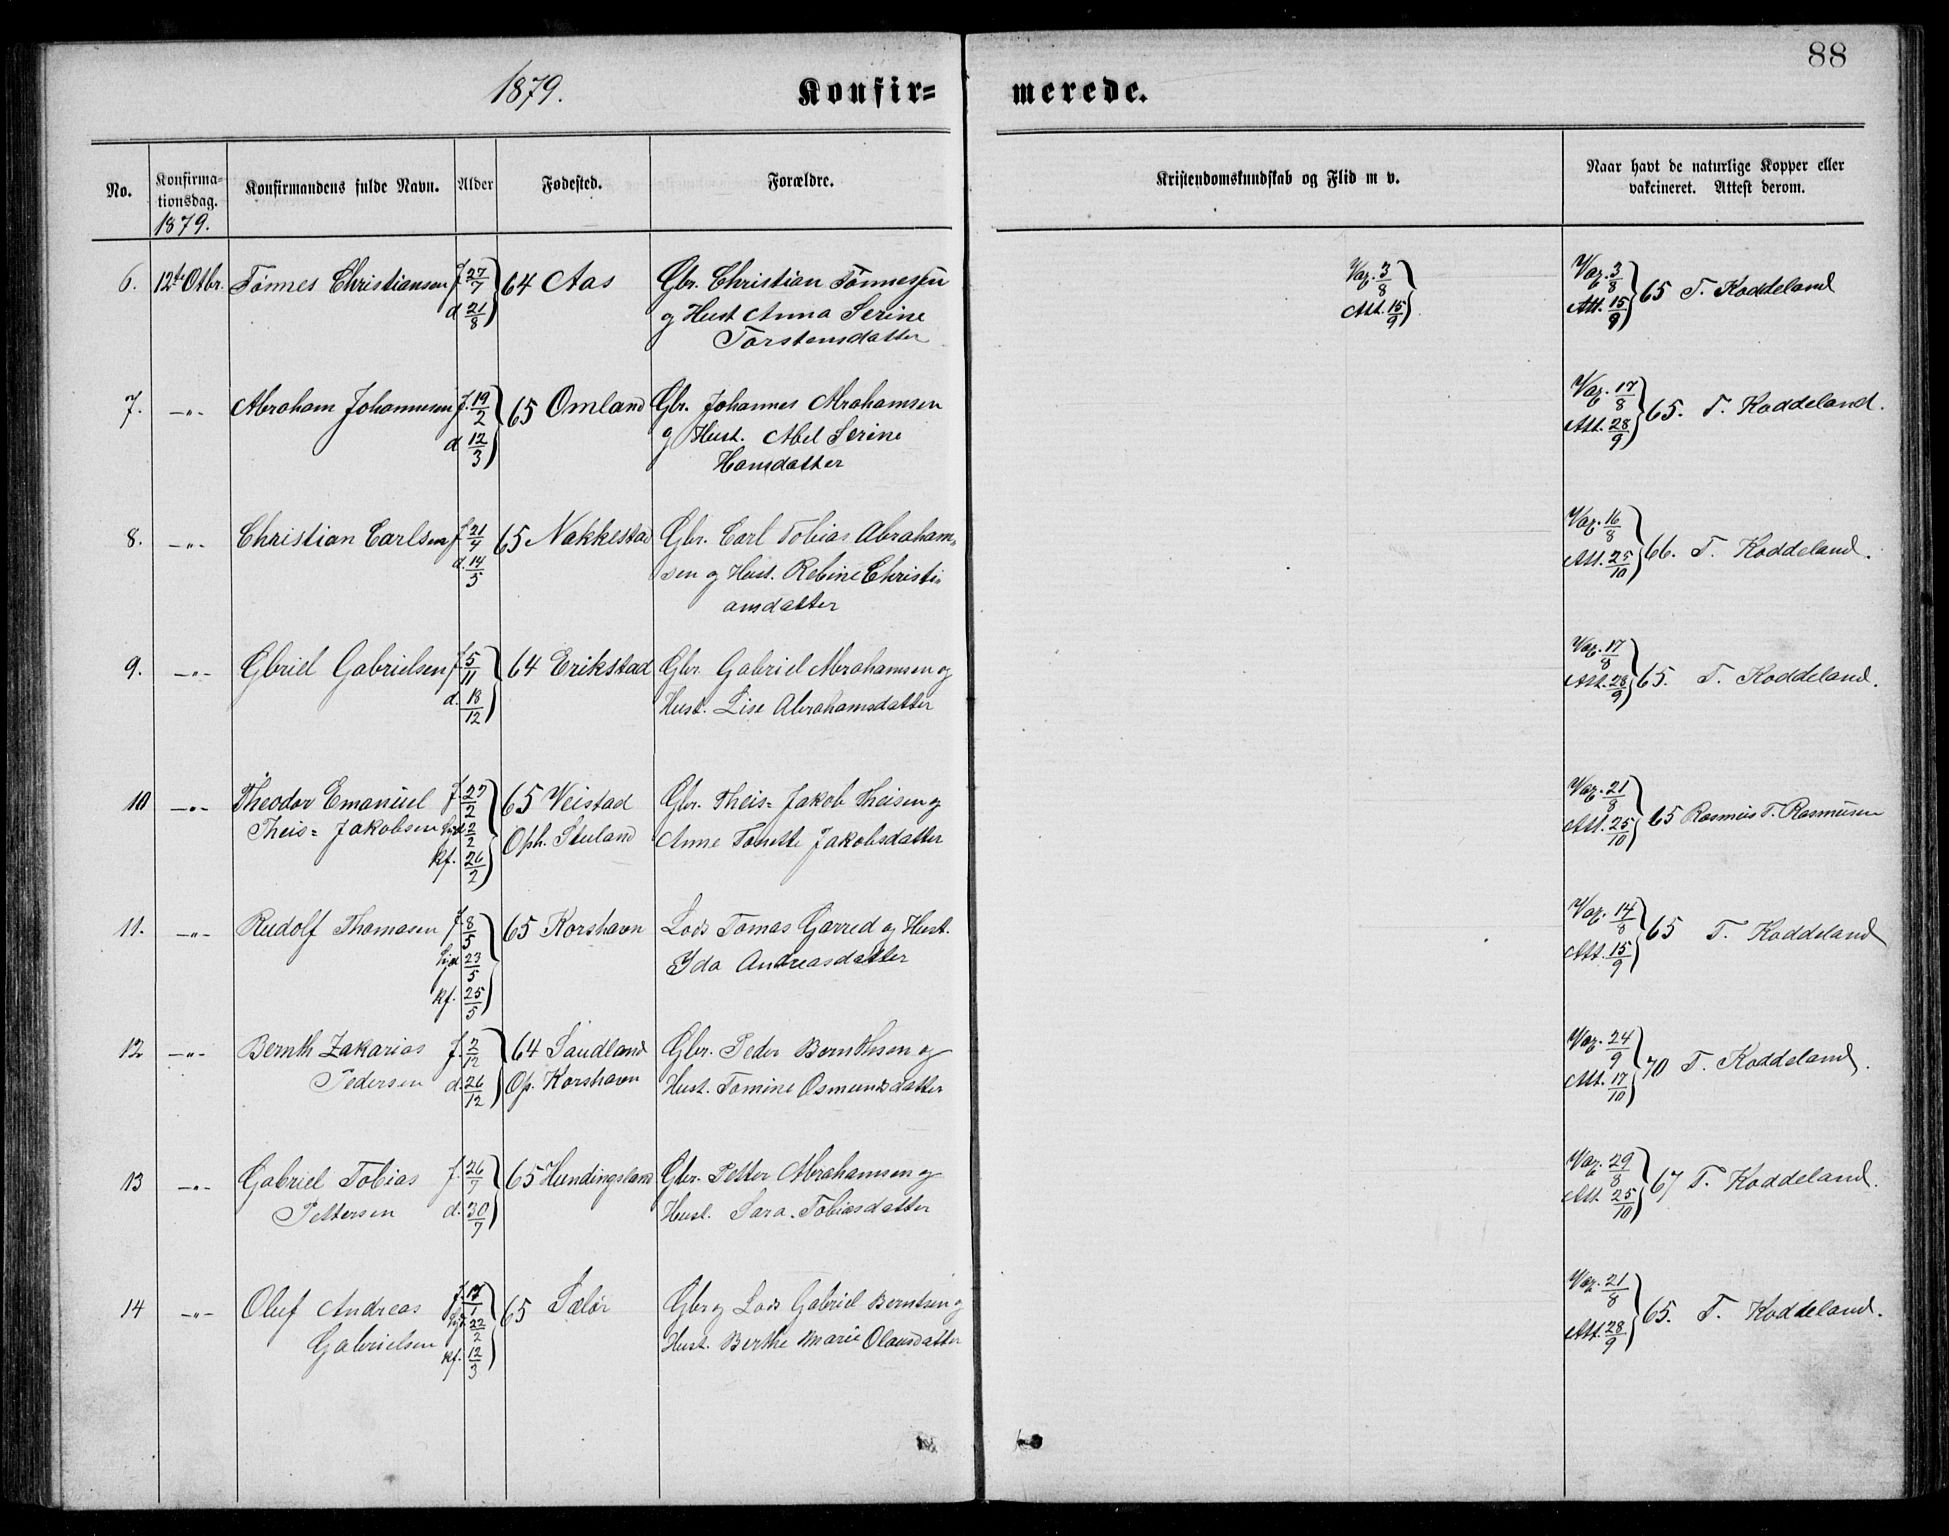 88
1879. Konfir= merede.
No. Konfirma-tionsdag. Konfirmandens fulde Navn. Alder Fødested. Forældre. Kristendomskundskab og Flid m v. Naar havt de naturlige Kopper eller vakcineret. Attest derom.
1879.
6. 12te Otbr. Tönnes Christiansen f. 27/7 64 Aas Gbr. Christian Tönnesen Vaz. 3/8 Vaz. 3/8 65 T. Koddeland
d 21/8 og Hust Anna Serine Att. 15/9 Att. 15/9
Torstensdatter
7. -"- Abraham Johannesen f. 19/2 65 Omland Gbr. Johannes Abrahamsen Vaz. 17/8 65. T. Koddeland.
d 12/3 og Hust. Abel Serine Att. 28/9
Hansdatter
8. -"- Christian Carlsen f 21/4 65 Nakkestad Gbr. Carl Tobias Abraham= Vaz. 16/8 66. T. Koddeland.
d. 14/5 sen og Hust. Rebine Christi Att. 25/10
ansdatter
9. -"- Gbriel Gabrielsen f. 5/11 64 Erikstad Gbr. Gabriel Abrahamsen og Vaz. 17/8 65. T. Koddeland.
d. 18/12 Hust. Lise Abrahamsdatter Att. 28/9
10 -"- Theodor Emanuel f. 27/2 65 Veistad Gbr. Theis= Jakob Theisen og Vaz. 21/8 65 Rasmus T. Rasmusen
Theis= Jakobsen 2/2 Oph. Stuland Anne Tonette Jakobsdatter Att. 25/10
kf. 26/2
11. -"- Rudolf Thomasen f. 8/5 65 Korshavn Lods Tomas Garred og Hust. Vaz. 14/8 65 T. Koddeland
23/5 Ida Andreasdatter Att. 15/9
kf. 25/5
12 -"- Bernth Zakarias f. 2/12 64 Sandland Gbr. Peder Bernthsen og Vaz. 24/9 70 T. Koddeland.
Pedersen d. 26/12 Op. Korshavn Hust. Tomine Osmundsdatter Att. 17/10
13 -"- Gabriel Tobias f. 26/7 65 Hundingsland Gbr. Petter Abrahamsen og Vaz. 29/8 67 T. Koddeland.
Pettersen d. 30/7 Hust. Sara Tobiasdatter Att 25/10
14 -"- Oluf Andreas 65 Sælör Gbr og Lods Gabriel Berntsen og Vaz. 21/8 65. T. Koddeland.
Gabrielsen 22/2 Hust. Berthe Marie Olausdatter Att. 28/9
kf. 12/3